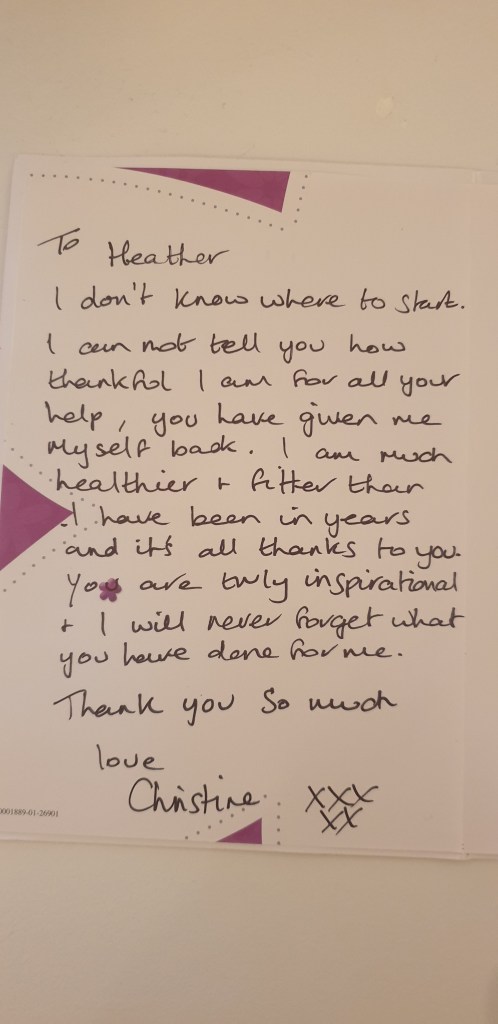 To Heather
I don't know where to start.
I can not tell you how
thankful I am for all your
help, you have given me
myself back. I am much
healthier + fitter than
I have been in years
and it's all thanks to you.
You are truly inspirational
+ I will never forget what
you have done for me.
Thank you so much
love
Christine XXX
XX
0001889-01-26901